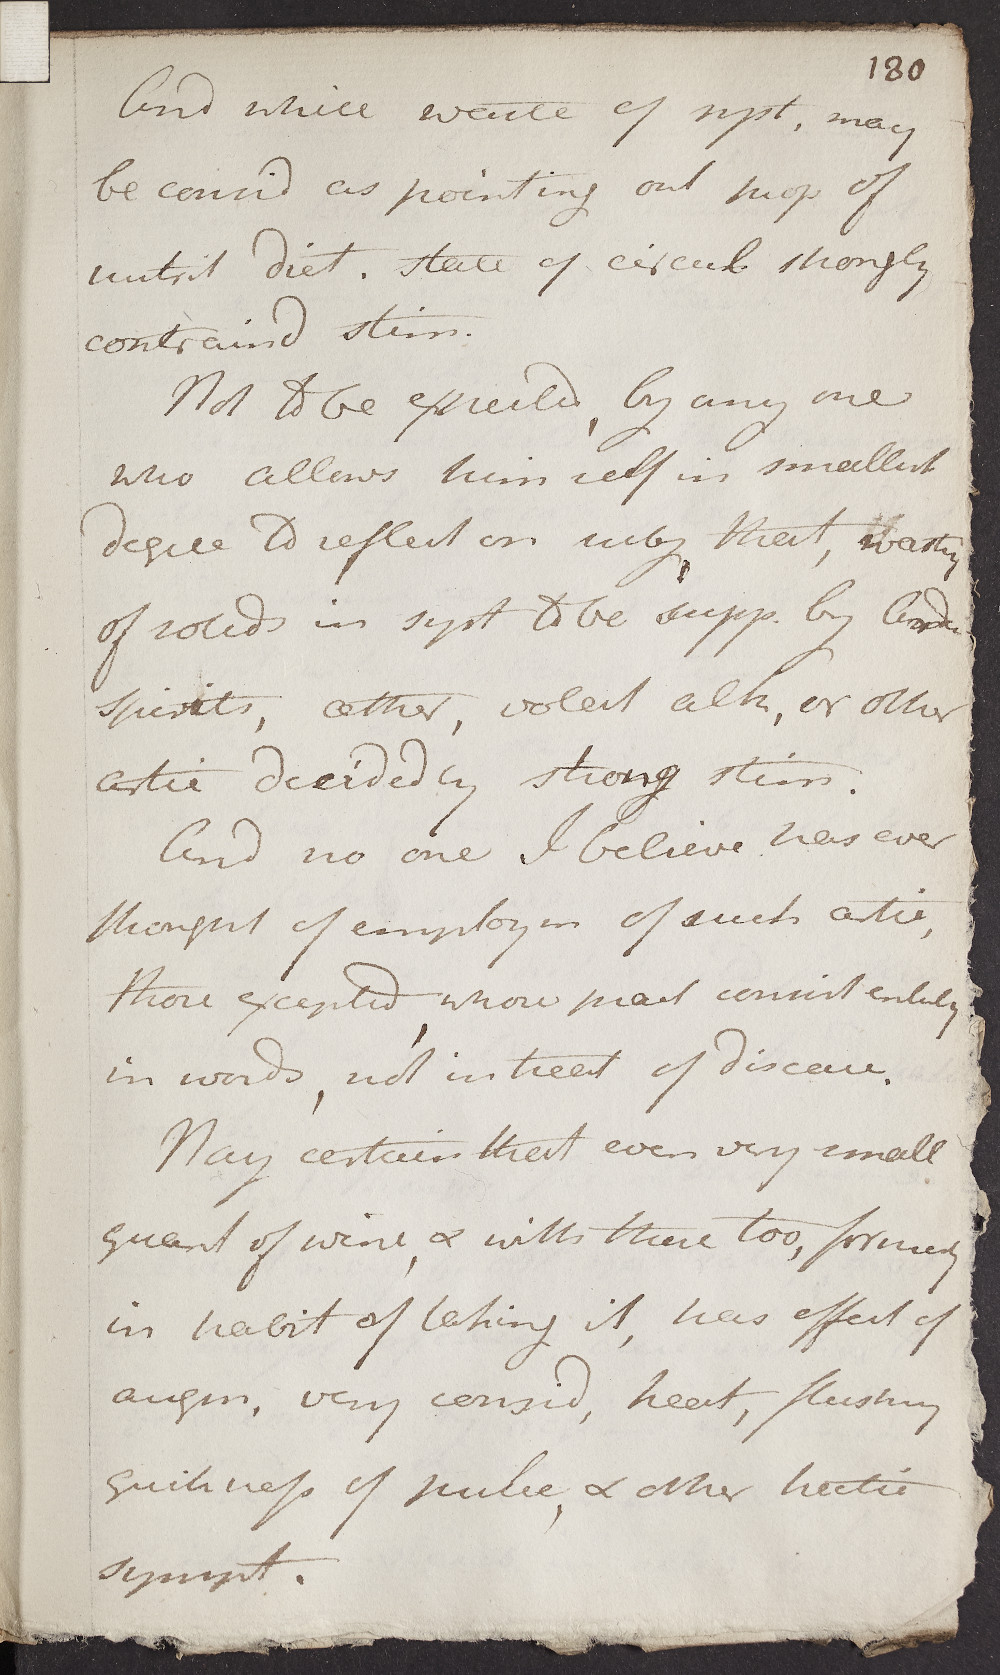 180
And while waste of syst, may
be consid as pointing out prop of
nutrit diet. state of circul strongly
contraind stim.
Not to be expected, by any one
who allows himself in smallest
degree to reflect on subj, that, wasting
of solids in syst to be supp. by Arden
spirits, æther, volat alk, or other
artic decidedly strong stim.
And no one I believe has ever
thought of employm of such artic,
those excepted, whose pract consist entirely
in words, not in treat of disease.
Nay certain that even very small
quant of wine, & with these too, formerly
in habit of taking it, has effect of
augm, very consid, heat, flushing
quickness of pulse, & other hectic
sympt.